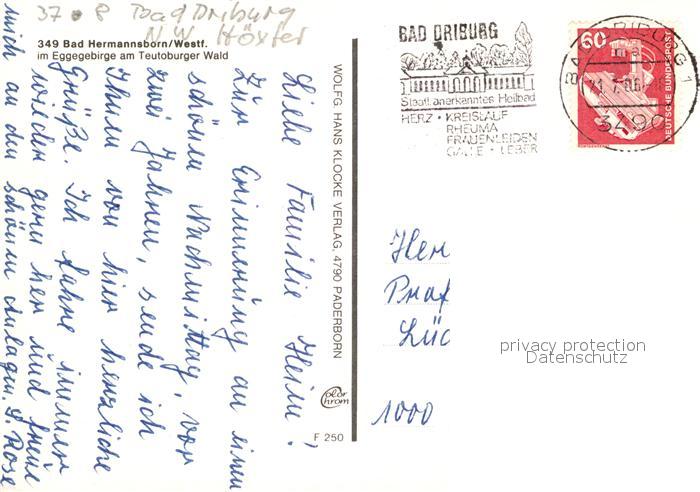 37 8 Bad Driburg
N.W. Höxter
349 Bad Hermannsborn/Westf.
im Eggegebirge am Teutoburger Wald
Liebe Familie Heim!
Zur Erinnerung an einen
schönen Nachmittag, vor
zwei Jahren, sende ich
Ihnen von hier herzliche
Grüße. Ich fahre immer
wieder gern her und freue
mich an den schönen Anlagen. G. Rose
WOLFG. HANS KLOCKE VERLAG, 4790 PADERBORN
color chrom
F 250
BAD DRIBURG
Staatl. anerkanntes Heilbad
HERZ · KREISLAUF
RHEUMA
FRAUENLEIDEN
GALLE · LEBER
BAD DRIBURG 1
3490
60
DEUTSCHE BUNDESPOST
Herr
Prof
Lüc
1000
privacy protection
Datenschutz